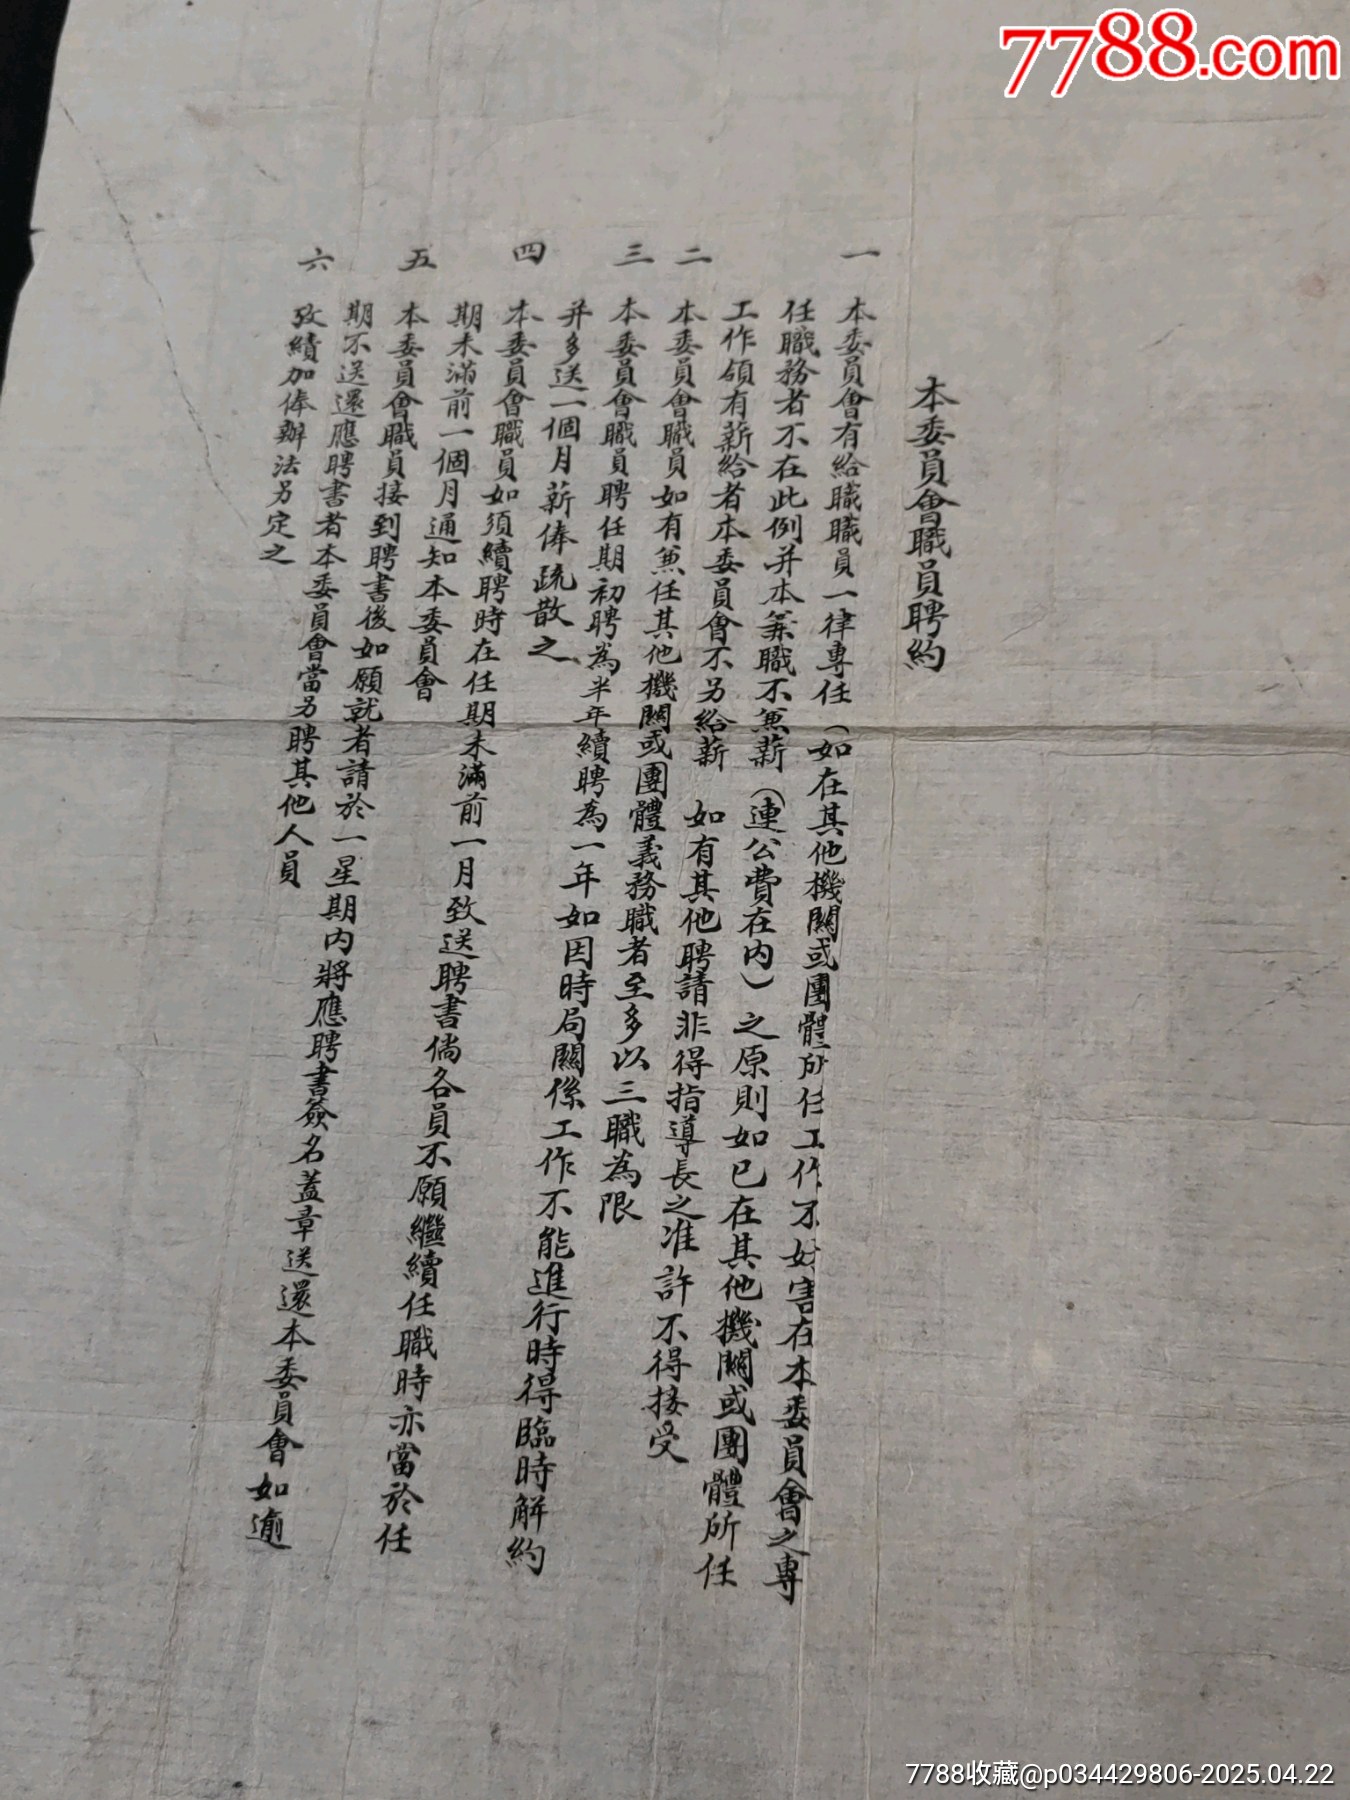 7788.com
本委員會職員聘約
一 本委員會有給職職員一律專任（如在其他機關或團體所任工作不妨害在本委員會之專
任職務者不在此例并本兼職不兼薪（連公費在內）之原則如已在其他機關或團體所任
工作領有薪給者本委員會不另給薪 如有其他聘請非得指導長之准許不得接受
二 本委員會職員如有兼任其他機關或團體義務職者至多以三職為限
三 本委員會職員聘任期初聘為半年續聘為一年如因時局關係工作不能進行時得臨時解約
并多送一個月薪俸疏散之
四 本委員會職員如須續聘時在任期未滿前一月致送聘書倘各員不願繼續任職時亦當於任
期未滿前一個月通知本委員會
五 本委員會職員接到聘書後如願就者請於一星期內將應聘書簽名蓋章送還本委員會如逾
期不送還應聘書者本委員會當另聘其他人員
六 攷績加俸辦法另定之
7788收藏@p034429806-2025.04.22